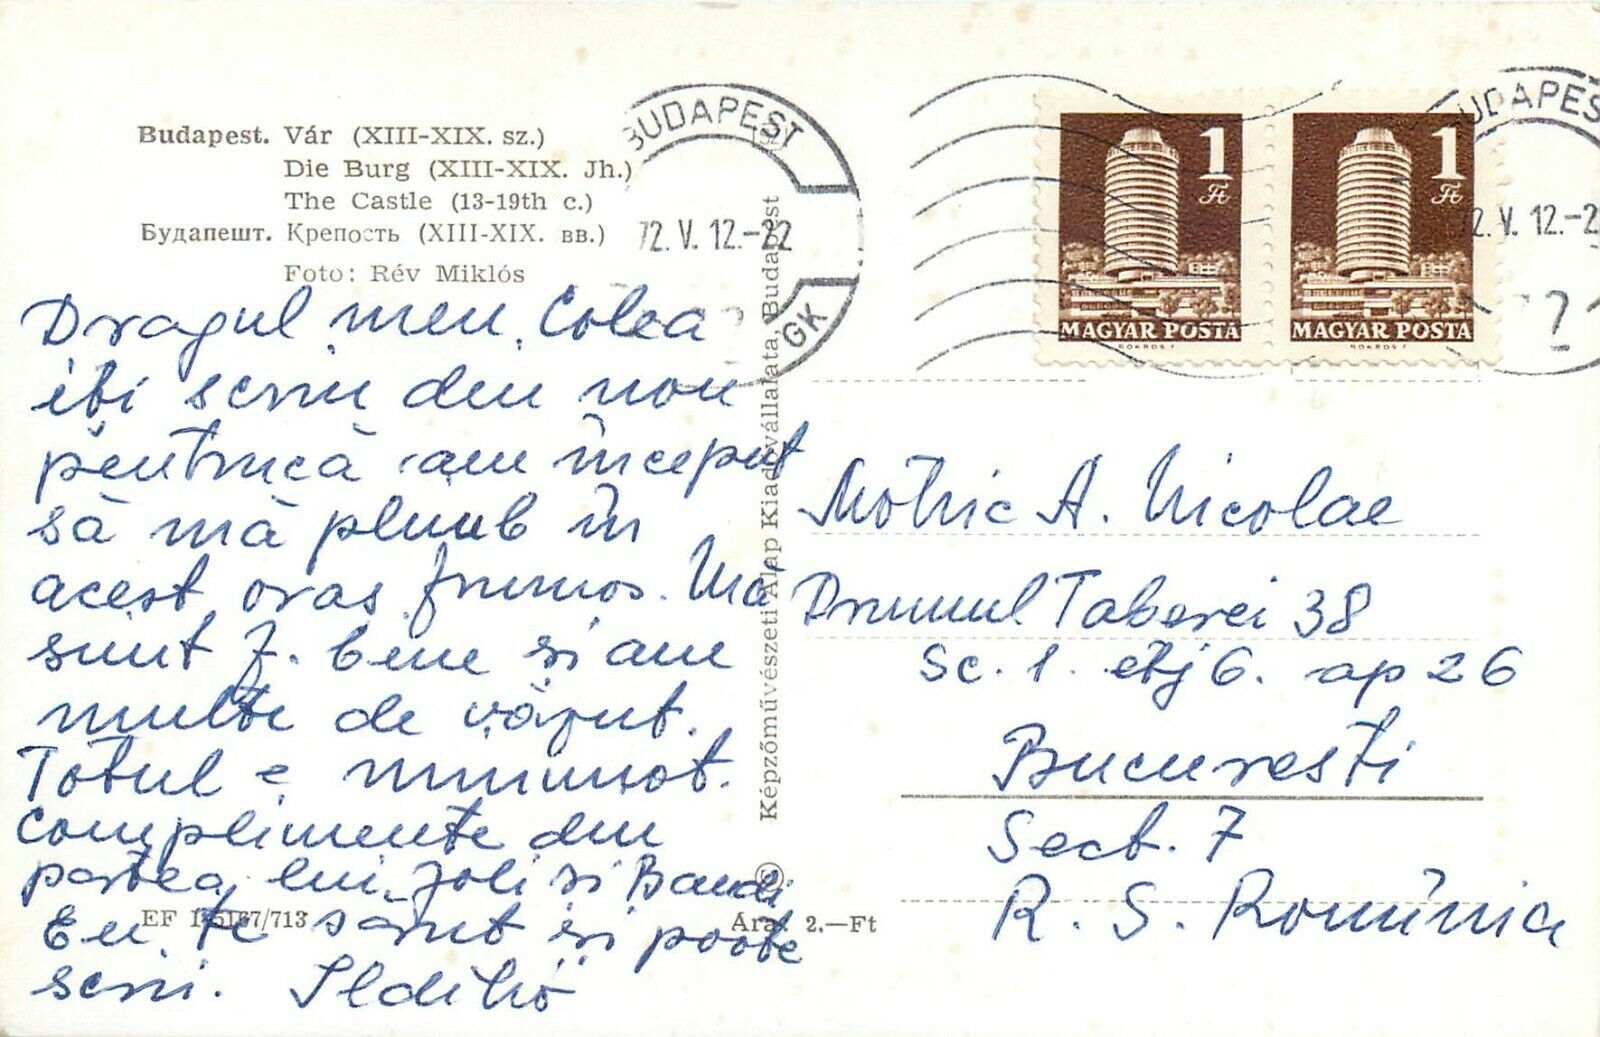 Budapest. Vár (XIII-XIX. sz.)
Die Burg (XIII-XIX. Jh.)
The Castle (13-19th c.)
Будапешт. Крепость (XIII-XIX. вв.)
Foto: Rév Miklós
Dragul meu, Colea
iti scriu din nou
pentrucă am inceput
să mă plimb în
acest oras frumos. Mă
simt f. bine si am
multe de văzut.
Totul e minunat.
Complimente din
partea lui Joli si Bandi
Eu te sărut si poate
scrii. Ildikó
EF
Ára: 2.—Ft
Képzőművészeti Alap Kiadóvállalata, Budapest
BUDAPEST
72.V.12.-22
GK
1 Ft
MAGYAR POSTA
1 Ft
MAGYAR POSTA
BUDAPEST
72.V.12.-2
Motric A. Nicolae
Drumul Taberei 38
Sc. 1. etj 6. ap 26
Bucuresti
Sect. 7
R. S. România